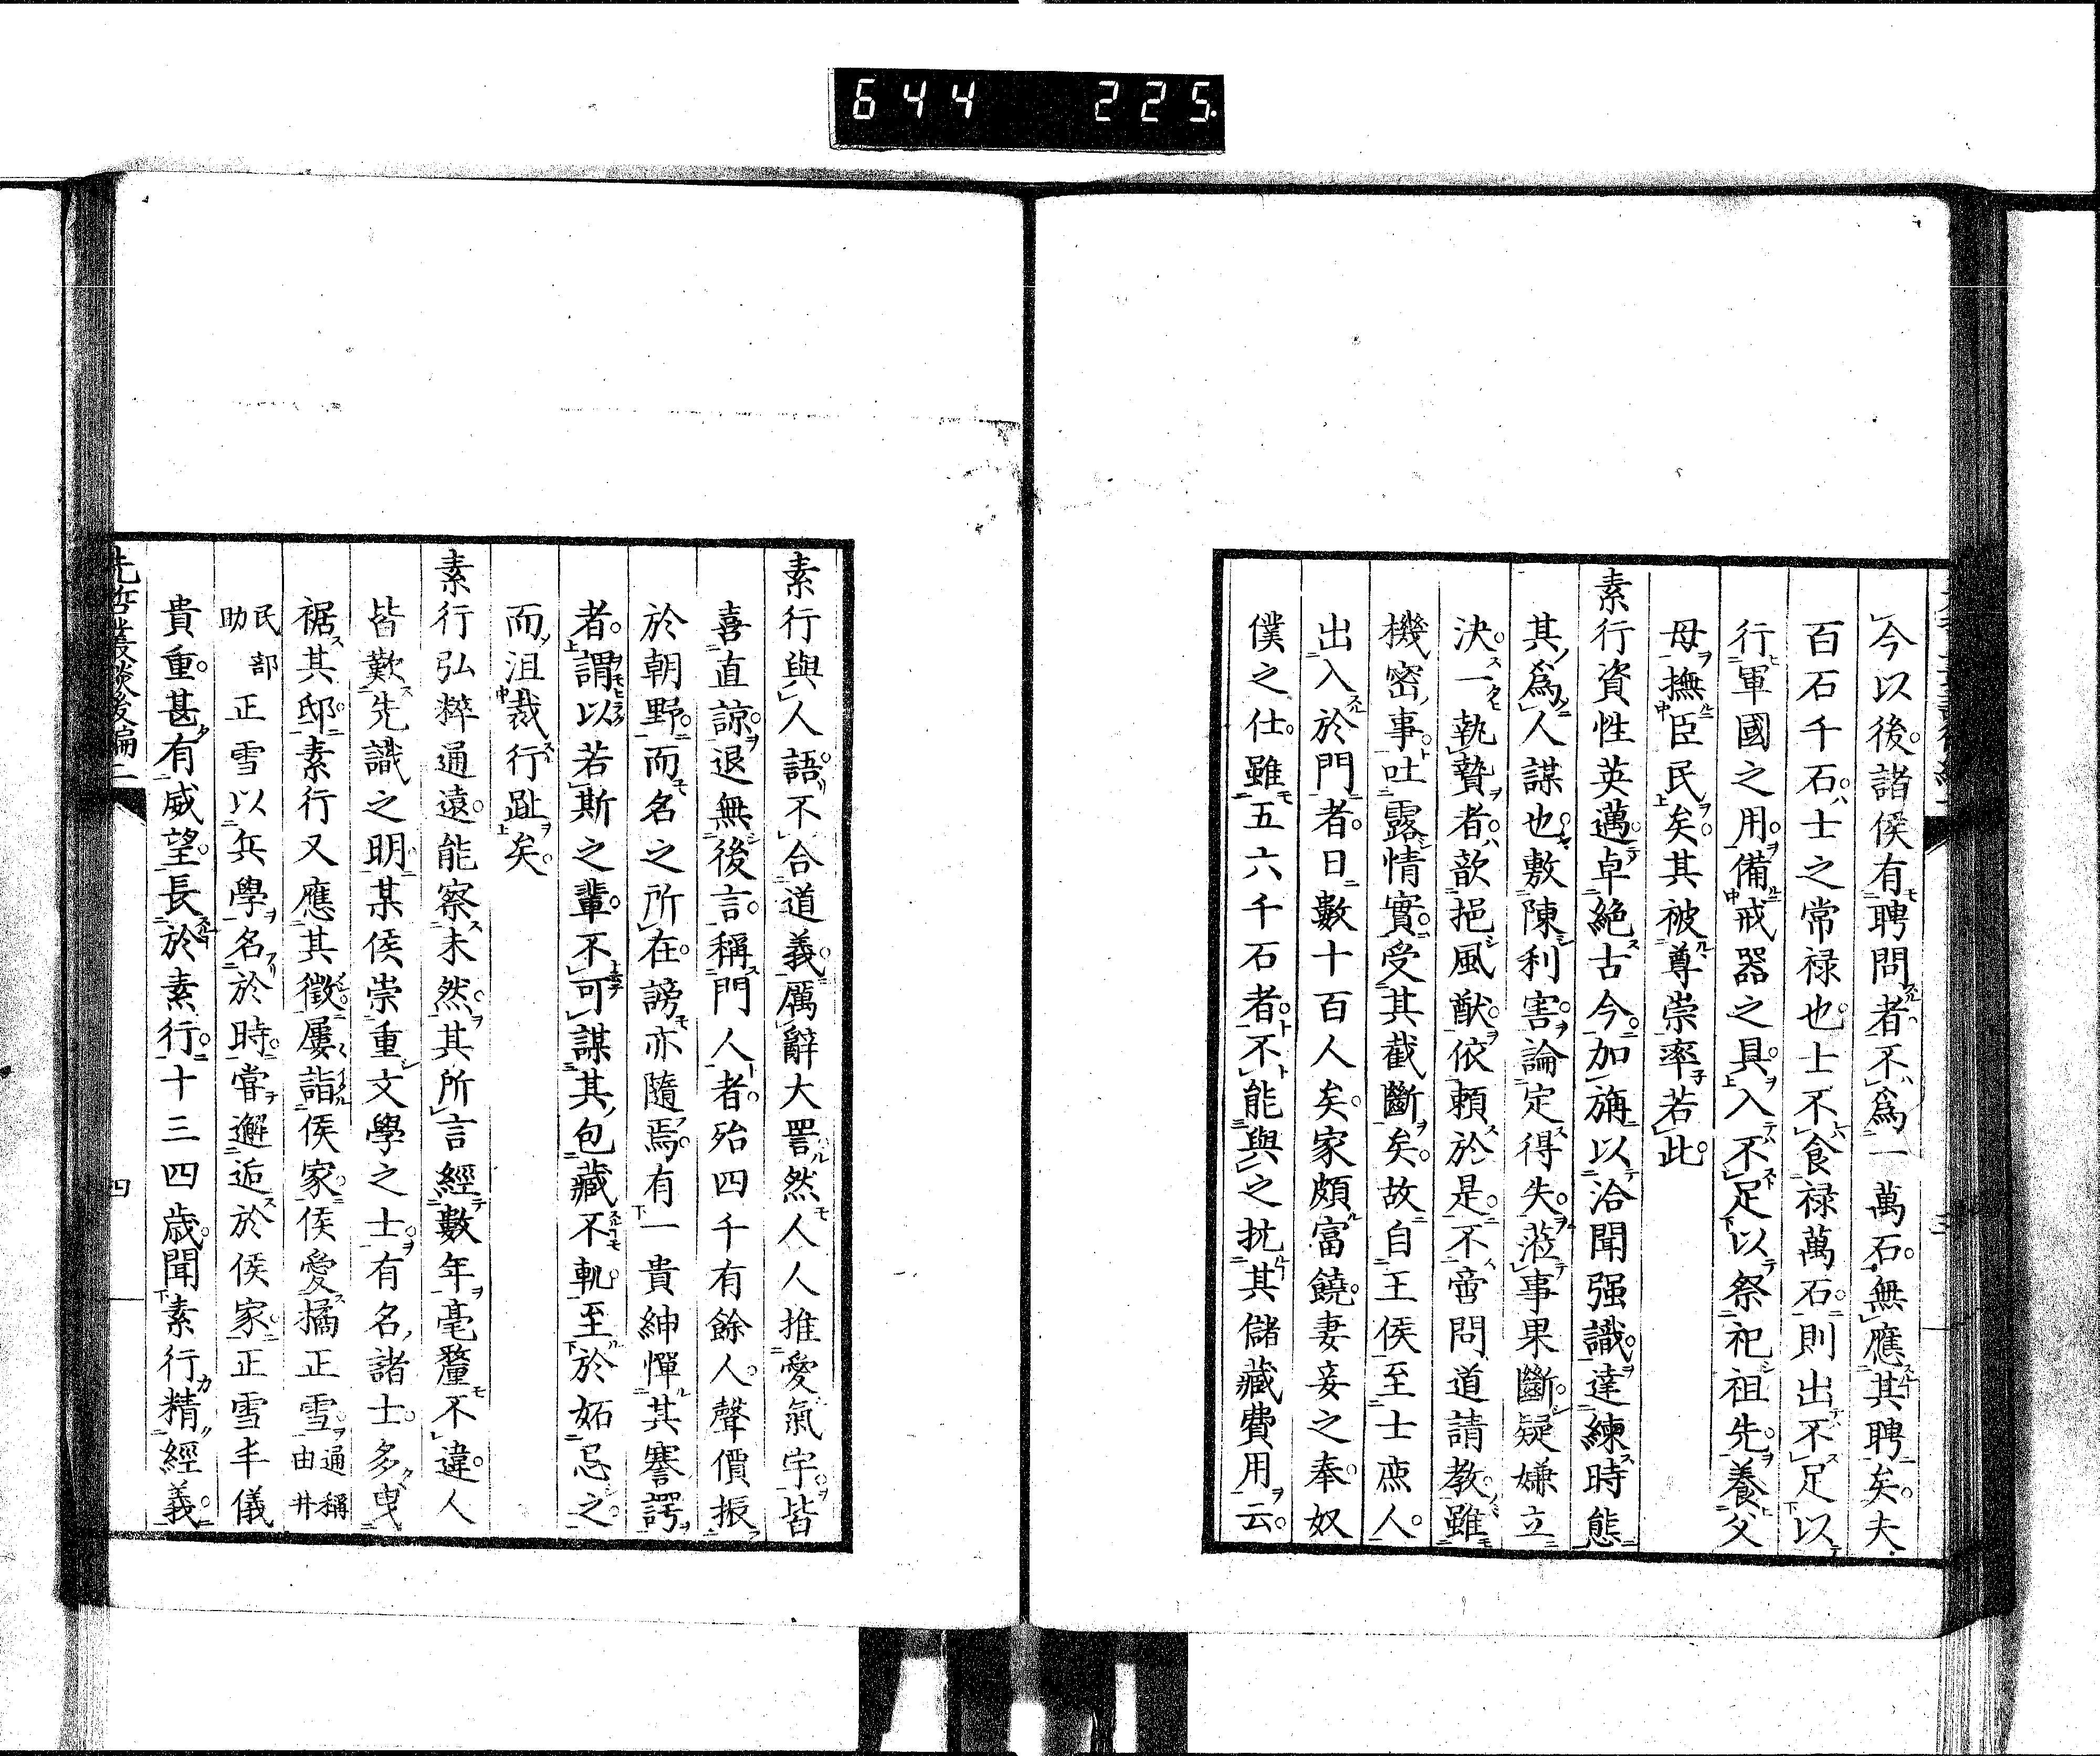 644 225
今以後。諸侯有聘問者不爲一萬石。無應其聘矣。夫
百石千石。士之常祿也。上不食祿萬石。則出不足以
行軍國之用。備戒器之具。入不足以祭祀祖先。養父
母撫臣民矣。其被尊崇率若此。
素行資性英邁。卓絕古今。加旃以洽聞强識。達練時態
其爲人謀也。敷陳利害。論定得失。蒞事果斷。疑嫌立
決。一執贄者。歆挹風猷。依頼於是。不啻問道請教。雖
機密事。吐露情實。受其截斷矣。故自王侯至士庶人。
出入於門者。日數十百人矣。家頗富饒。妻妾之奉。奴
僕之仕。雖五六千石者。不能與之抗。其儲藏費用云。
素行與人語。不合道義。厲辭大詈。然人人推愛氣宇。皆
喜直諒。退無後言。稱門人者。殆四千有餘人。聲價振
於朝野。而名之所在。謗亦隨焉。有一貴紳憚其謇諤。
者。謂以若斯之輩。不可謀其包藏不軌。至於妬忌之。
而沮裁行趾矣。
素行弘粹通遠。能察未然。其所言經數年。毫釐不違。人
皆歎先識之明。某侯崇重文學之士。有名諸士。多曳
裾其邸。素行又應其徵。屢詣侯家。侯愛橘正雪。通稱由井
民部助正雪以兵學名於時。嘗邂逅於侯家。正雪丰儀
貴重。甚有威望。長於素行。十三四歲。聞素行精經義。
先哲叢談後編二
四